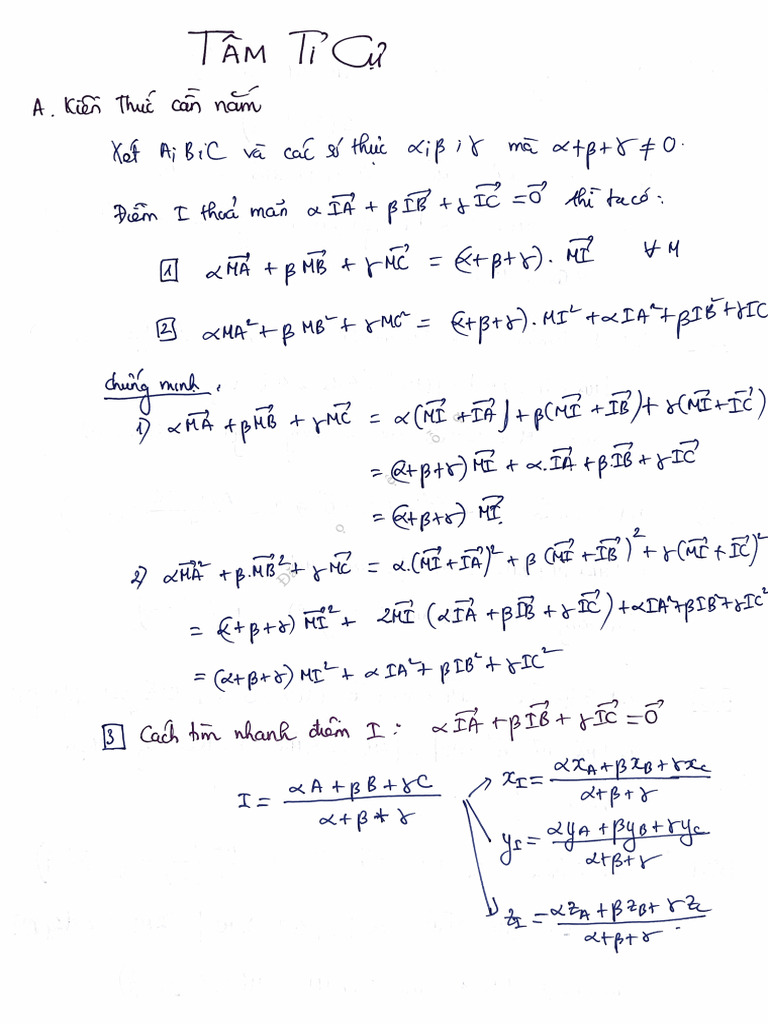 TÂM TỈ CỰ
A. Kiến thức cần nắm
Xét A; B; C và các số thực α; β; γ mà α+β+γ ≠ 0.
Điểm I thoả mãn α\vec{IA} + β\vec{IB} + γ\vec{IC} = \vec{0} thì ta có:
1 α\vec{MA} + β\vec{MB} + γ\vec{MC} = (α+β+γ).\vec{MI} ∀ M
2 αMA² + βMB² + γMC² = (α+β+γ).MI² + αIA² + βIB² + γIC
chứng minh.
1) α\vec{MA} + β\vec{MB} + γ\vec{MC} = α(\vec{MI} + \vec{IA}) + β(\vec{MI} + \vec{IB}) + γ(\vec{MI} + \vec{IC})
= (α+β+γ)\vec{MI} + α.\vec{IA} + β.\vec{IB} + γ\vec{IC}
= (α+β+γ) \vec{MI}.
2) α\vec{MA}² + β.\vec{MB}² + γ\vec{MC} = α.(\vec{MI} + \vec{IA})² + β(\vec{MI} + \vec{IB})² + γ(\vec{MI} + \vec{IC})²
= (α+β+γ) \vec{MI}² + 2\vec{MI} (α\vec{IA} + β\vec{IB} + γ\vec{IC}) + αIA² + βIB² + γIC²
= (α+β+γ) MI² + αIA² + βIB² + γIC²
3 Cách tìm nhanh điểm I: α\vec{IA} + β\vec{IB} + γ\vec{IC} = \vec{0}
I = \frac{αA + βB + γC}{α+β+γ}
x_I = \frac{αx_A + βx_B + γx_C}{α+β+γ}
y_I = \frac{αy_A + βy_B + γy_C}{α+β+γ}
z_I = \frac{αz_A + βz_B + γz_C}{α+β+γ}